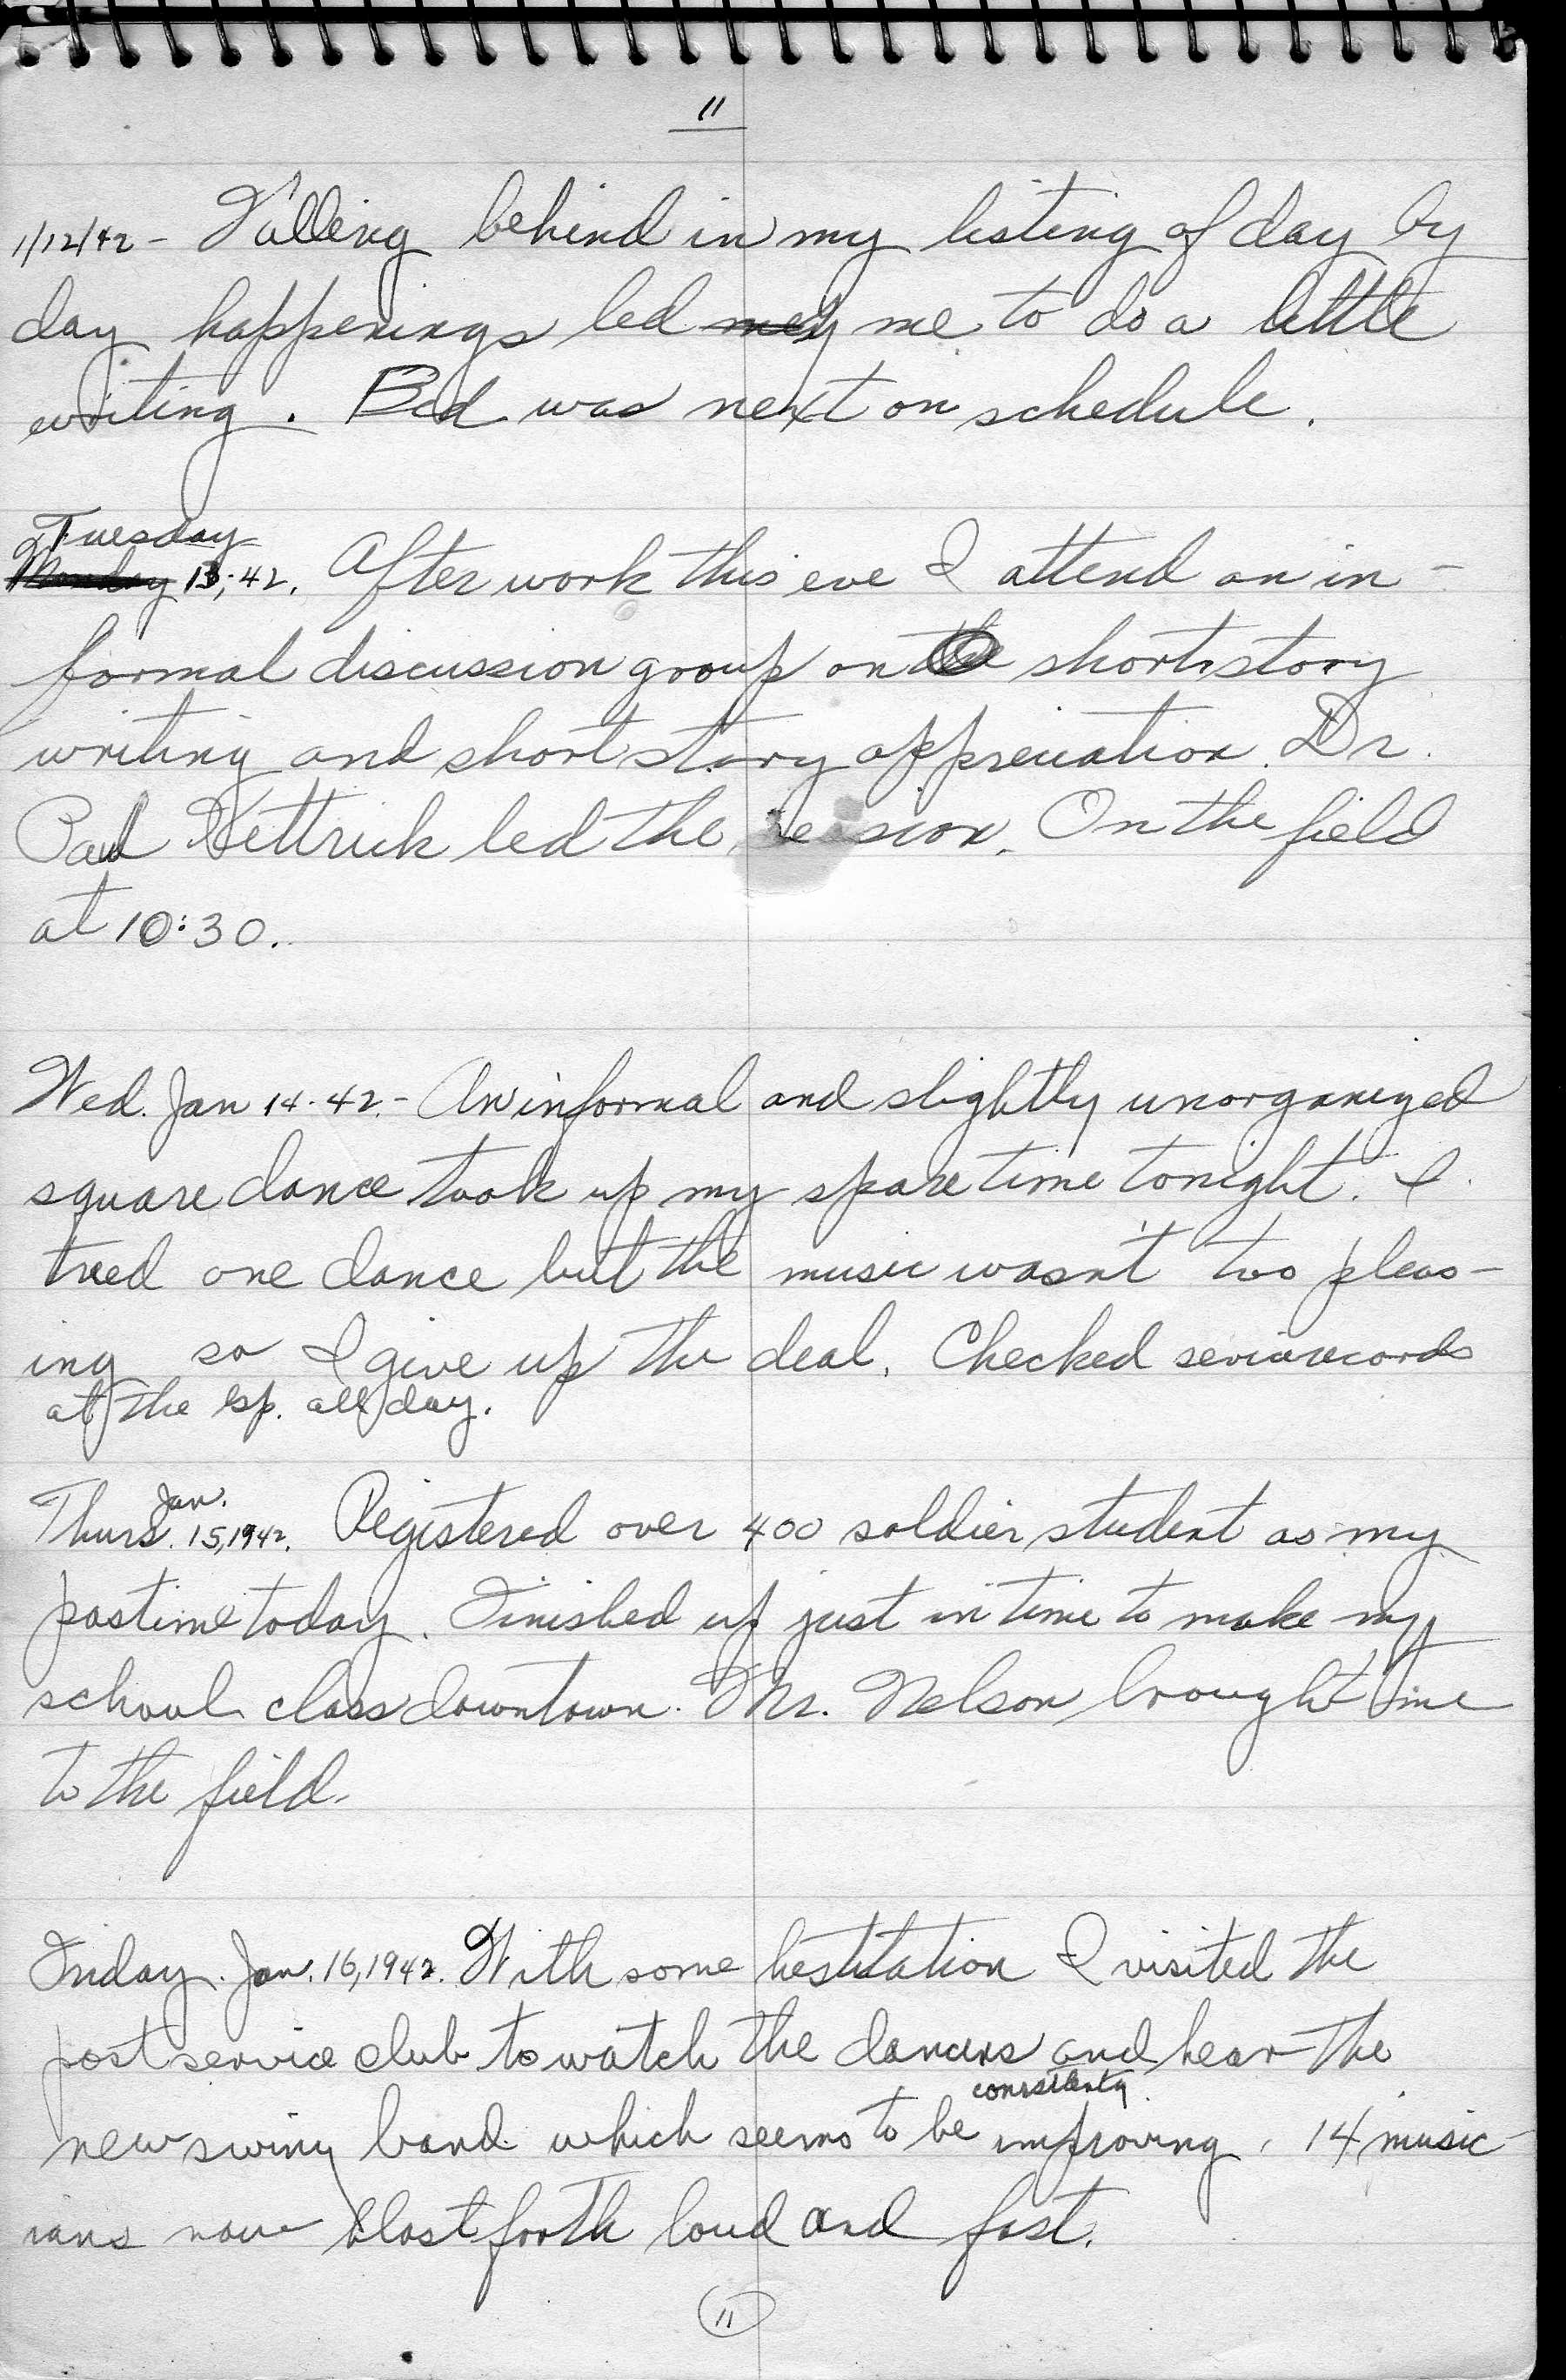 11
1/12/42 - Falling behind in my listing of day by
day happenings led my me to do a little
writing. Bed was next on schedule.
Tuesday
Monday 13, 42. After work this eve I attend an in-
formal discussion group on the short story
writing and short story appreciation. Dr.
Paul Kettrick led the session. On the field
at 10:30.
Wed. Jan 14-42.- An informal and slightly unorganized
square dance took up my spare time tonight. I
tried one dance but the music wasn't too pleas-
ing so I give up the deal. Checked service records
at the hsp. all day.
Jan.
Thurs. 15, 1942. Registered over 400 soldier student as my
pastime today. Finished up just in time to make my
school class downtown. Mr. Nelson brought me
to the field.
Friday. Jan. 16, 1942. With some hestitation I visited the
post service club to watch the dancers and hear the
consistently
new swing band which seems to be improving. 14 music-
ians now blast forth loud and fast.
11